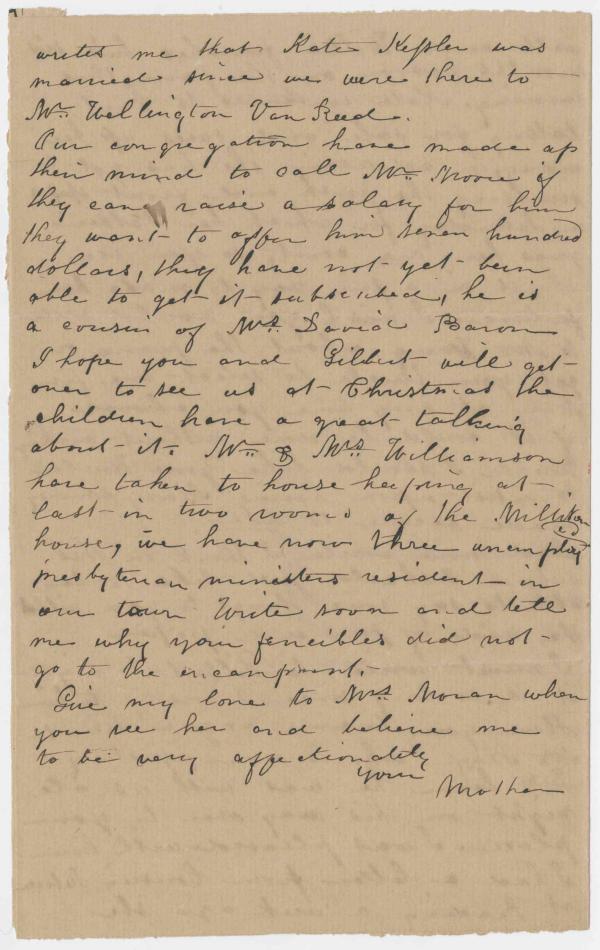 writes me that Kate Kessler was
married since we were there to
Mr. Wellington Van Reed.
Our congregation have made up
their mind to call Mr. Moore if
they can raise a salary for him
they want to offer him seven hundred
dollars, they have not yet been
able to get it subscribed, he is
a cousin of Mrs. David Baron
I hope you and Gilbert will get
over to see us at Christmas the
children have a great talking
about it. Mr. & Mrs. Williamson
have taken to house keeping at
last in two rooms of the Milliken
house, we have now three unemployed
presbyterian ministers resident in
our town Write soon and tell
me why your fencibles did not
go to the encampment.
Give my love to Mrs. Moran when
you see her and believe me
to be very affectionately
your
Mother